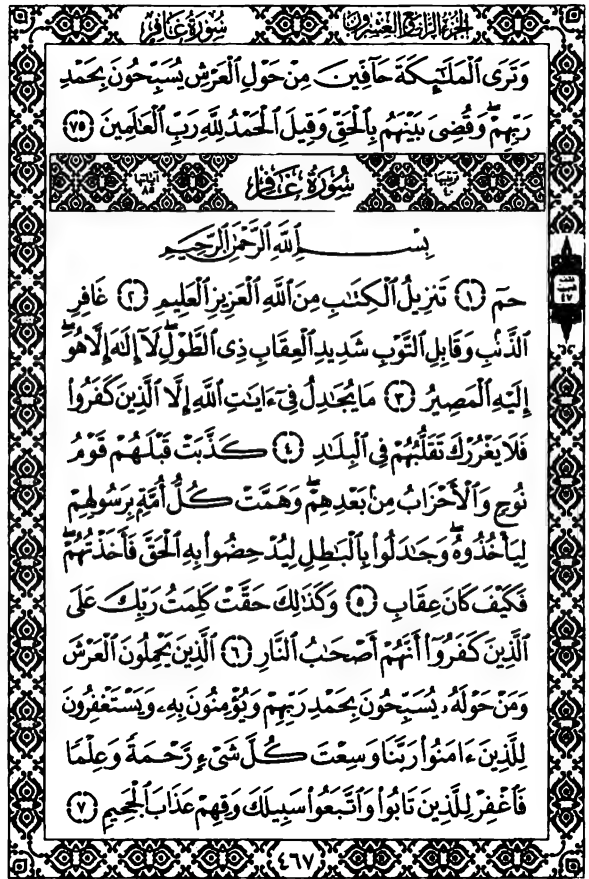 سُورَةُ غَافِرٍ الجُزْءُ الرَّابِعُ وَالعِشْرُونَ
وَتَرَى ٱلْمَلَٰٓئِكَةَ حَآفِّينَ مِنْ حَوْلِ ٱلْعَرْشِ يُسَبِّحُونَ بِحَمْدِ
رَبِّهِمْۖ وَقُضِىَ بَيْنَهُم بِٱلْحَقِّ وَقِيلَ ٱلْحَمْدُ لِلَّهِ رَبِّ ٱلْعَٰلَمِينَ ٧٥
سُورَةُ غَافِرٍ
بِسْمِ ٱللَّهِ ٱلرَّحْمَٰنِ ٱلرَّحِيمِ
حمٓ ١ تَنزِيلُ ٱلْكِتَٰبِ مِنَ ٱللَّهِ ٱلْعَزِيزِ ٱلْعَلِيمِ ٢ غَافِرِ
ٱلذَّنۢبِ وَقَابِلِ ٱلتَّوْبِ شَدِيدِ ٱلْعِقَابِ ذِى ٱلطَّوْلِۖ لَآ إِلَٰهَ إِلَّا هُوَۖ
إِلَيْهِ ٱلْمَصِيرُ ٣ مَا يُجَٰدِلُ فِىٓ ءَايَٰتِ ٱللَّهِ إِلَّا ٱلَّذِينَ كَفَرُوا۟
فَلَا يَغْرُرْكَ تَقَلُّبُهُمْ فِى ٱلْبِلَٰدِ ٤ كَذَّبَتْ قَبْلَهُمْ قَوْمُ
نُوحٍ وَٱلْأَحْزَابُ مِنۢ بَعْدِهِمْۖ وَهَمَّتْ كُلُّ أُمَّةٍۭ بِرَسُولِهِمْ
لِيَأْخُذُوهُۖ وَجَٰدَلُوا۟ بِٱلْبَٰطِلِ لِيُدْحِضُوا۟ بِهِ ٱلْحَقَّ فَأَخَذْتُهُمْۖ
فَكَيْفَ كَانَ عِقَابِ ٥ وَكَذَٰلِكَ حَقَّتْ كَلِمَتُ رَبِّكَ عَلَى
ٱلَّذِينَ كَفَرُوٓا۟ أَنَّهُمْ أَصْحَٰبُ ٱلنَّارِ ٦ ٱلَّذِينَ يَحْمِلُونَ ٱلْعَرْشَ
وَمَنْ حَوْلَهُۥ يُسَبِّحُونَ بِحَمْدِ رَبِّهِمْ وَيُؤْمِنُونَ بِهِۦ وَيَسْتَغْفِرُونَ
لِلَّذِينَ ءَامَنُوا۟ رَبَّنَا وَسِعْتَ كُلَّ شَىْءٍ رَّحْمَةً وَعِلْمًا
فَٱغْفِرْ لِلَّذِينَ تَابُوا۟ وَٱتَّبَعُوا۟ سَبِيلَكَ وَقِهِمْ عَذَابَ ٱلْجَحِيمِ ٧
٤٦٧